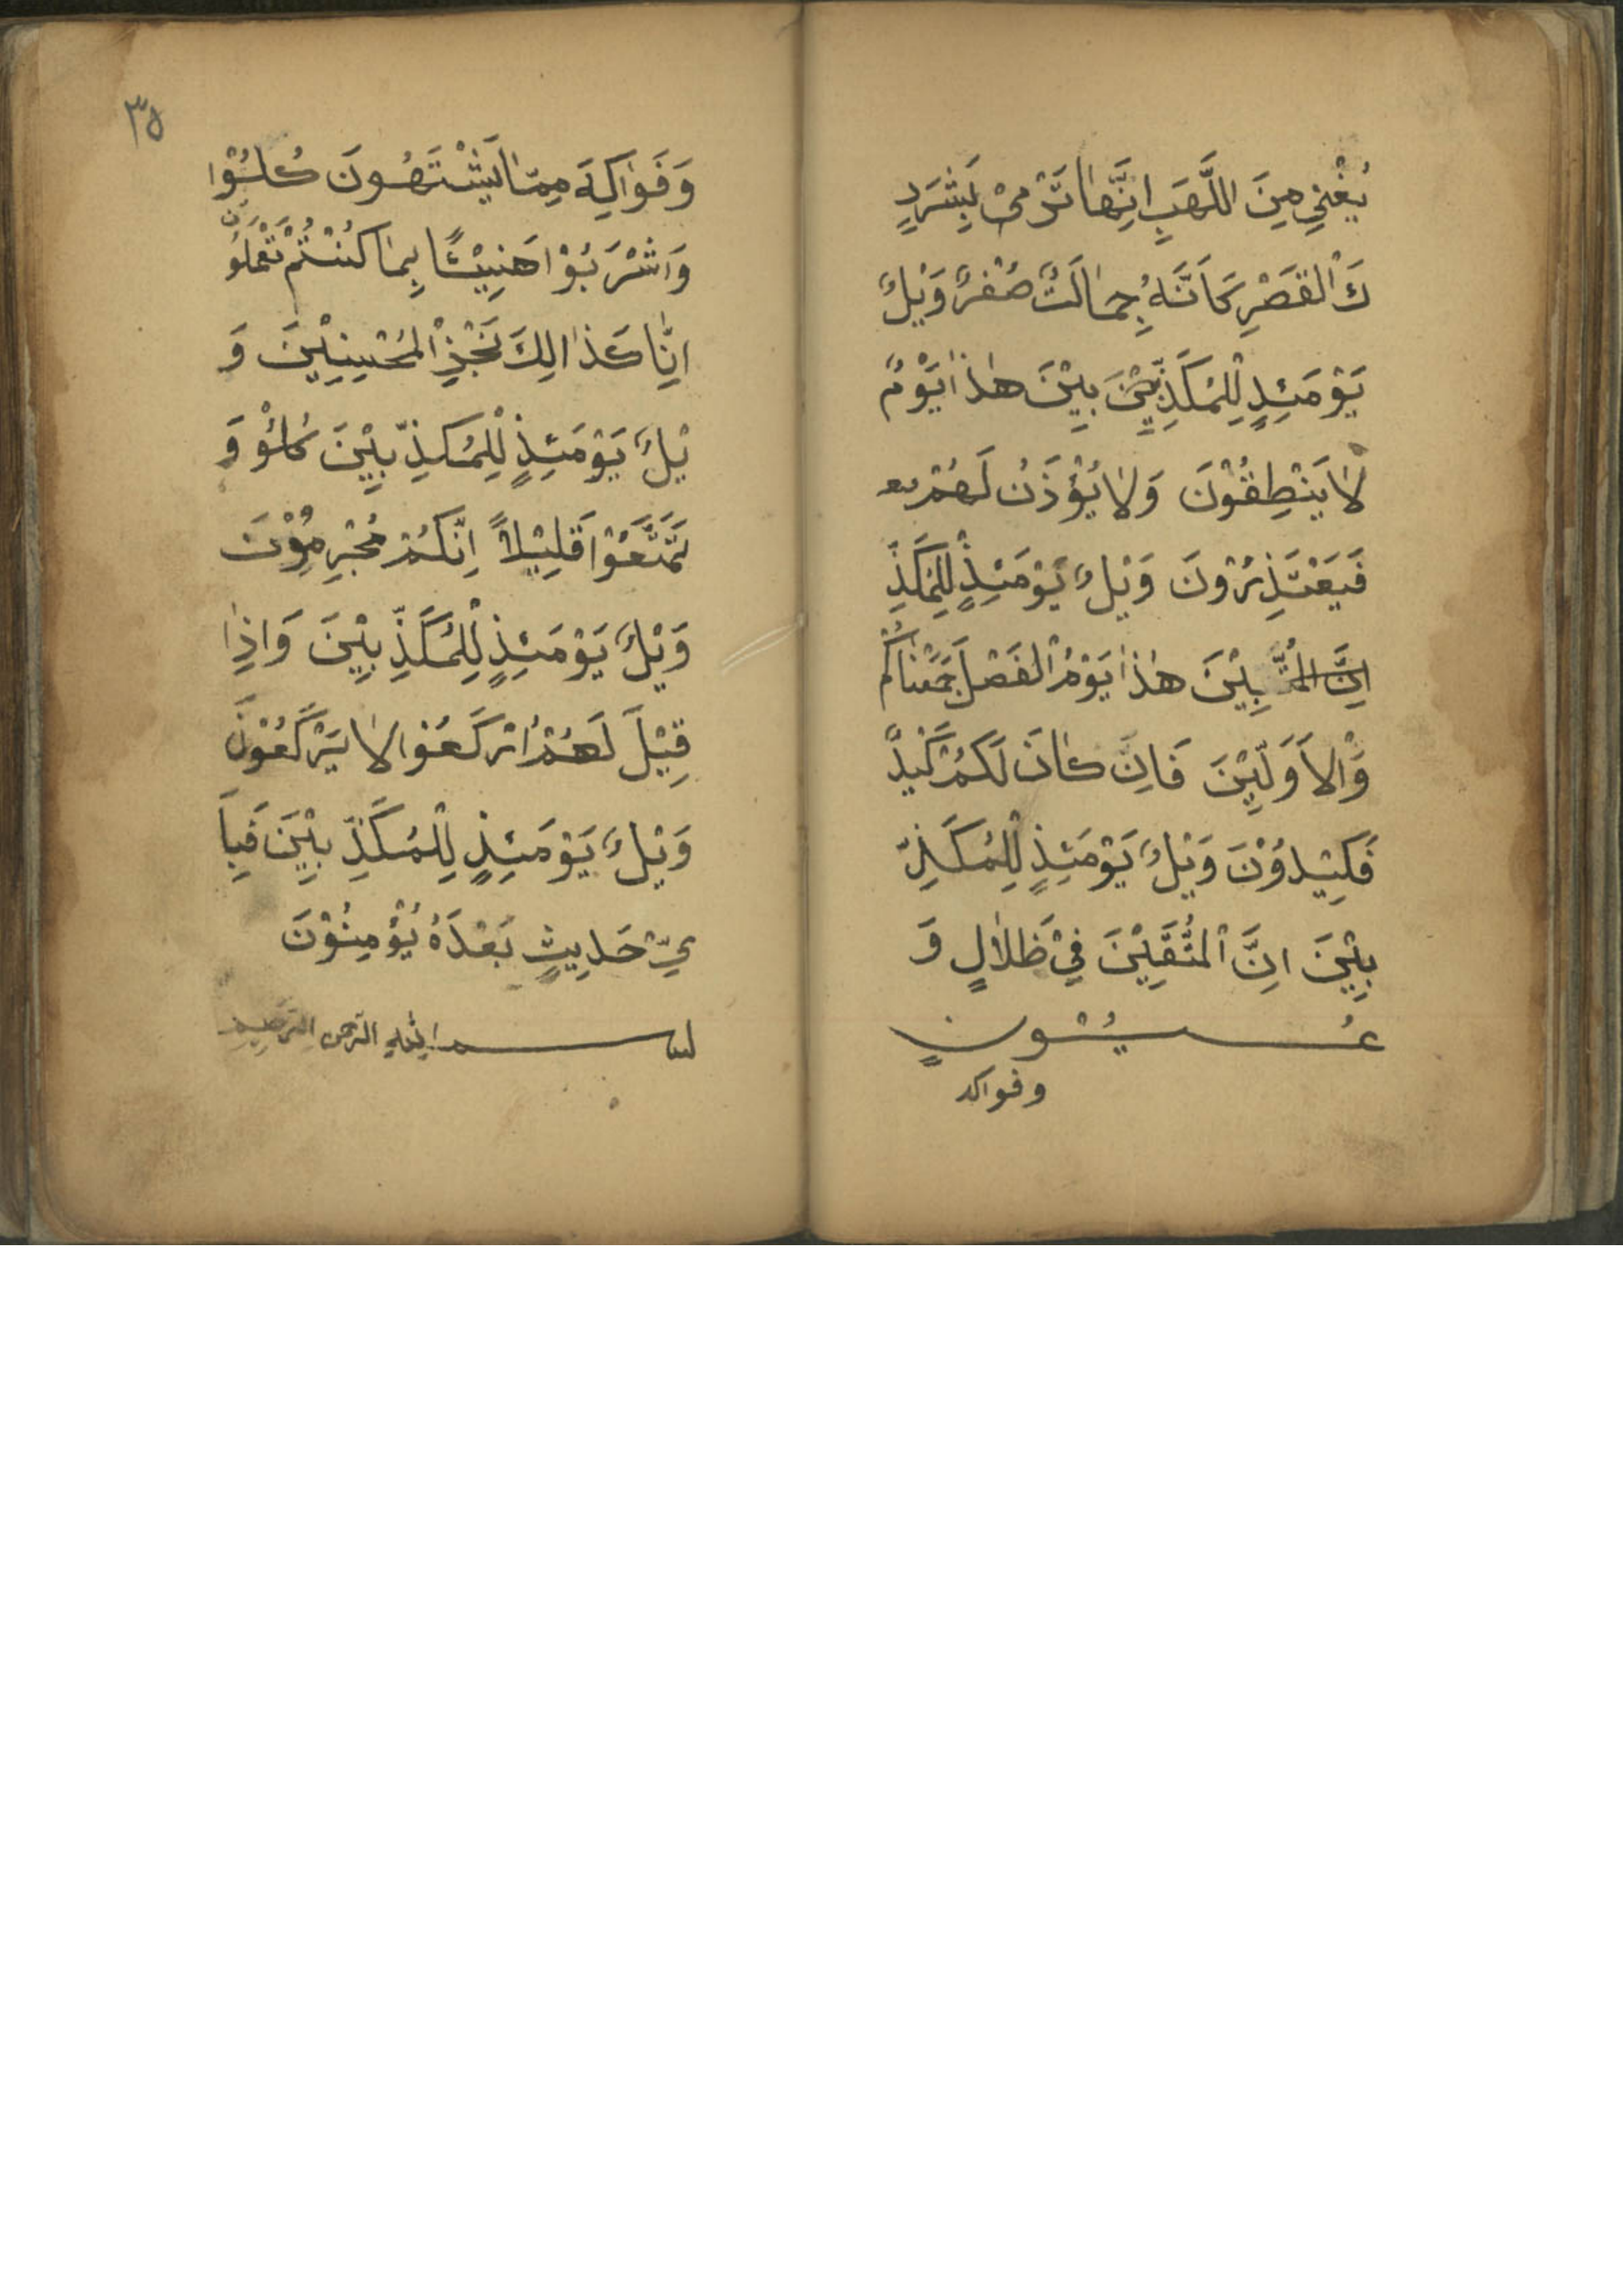 يُغْنِيْ مِنَ اللَّهَبِ اِنَّهَا تَرْمىْ بَشَرَرٍ
كَ الْقَصْرِ كَاَنَّهُ جِمَالَتٌ صُفْرٌ وَيْلٌ
يَوْمَئِدٍ لِلْمُكَذِّبِيْنَ بِيْنَ هٰذَا يَوْمُ
لَا يَنْطِقُوْنَ وَلَا يُؤْذَنُ لَهُمْ يع
فَيَعْتَذِرُوْنَ وَيْلٌ يَوْمَئِذٍ لِلْمُكَذِّ
بِيْنَ هٰذَا يَوْمُ الْفَصْلِ جَمَعْنَاكُمْ
وَالْاَوَلِّيْنَ فَاِنَ كَانَ لَكُمْ كَيْدٌ
فَكِيْدُوْنَ وَيْلٌ يَوْمَئِذٍ لِلْمُكَذِّ
بِيْنَ اِنَّ الْمُتَّقِيْنَ فِيْ ظَلَالٍ وَ
عُيُوْنٍ
وفواكه
٣٥
وَفَوَاكِهَ مِمَّا يَشْتَهُونَ كُلُوْا
وَاشْرَبُوْا هَنِيْئًا بِمَا كُنْتُمْ تَعْمَلُوْنَ
اِنَّا كَذَالِكَ نَجْزِ الْمُحْسِنِيْنَ وَ
يْلٌ يَوْمَئِذٍ لِلْمُكَذِّبِيْنَ كُلُوْ وَ
تَمَتَّعَوْا قَلِيْلاً اِنَّكُمْ مُجْرِمُوْنَ
وَيْلٌ يَوْمَئِذٍ لِلْمُكَذِّبِيْنَ وَاِذَا
قِيْلَ لَهُمْ ارْكَعُوا لَا يَرْكَعُوْنَ
وَيْلٌ يَوْمَئِذٍ لِلْمُكَذِّبِيْنَ فَبِاَ
يِّ حَدِيثٍ بَعْدَهُ يُؤْمِنُوْنَ
بسم الله الرحمن الرحيم